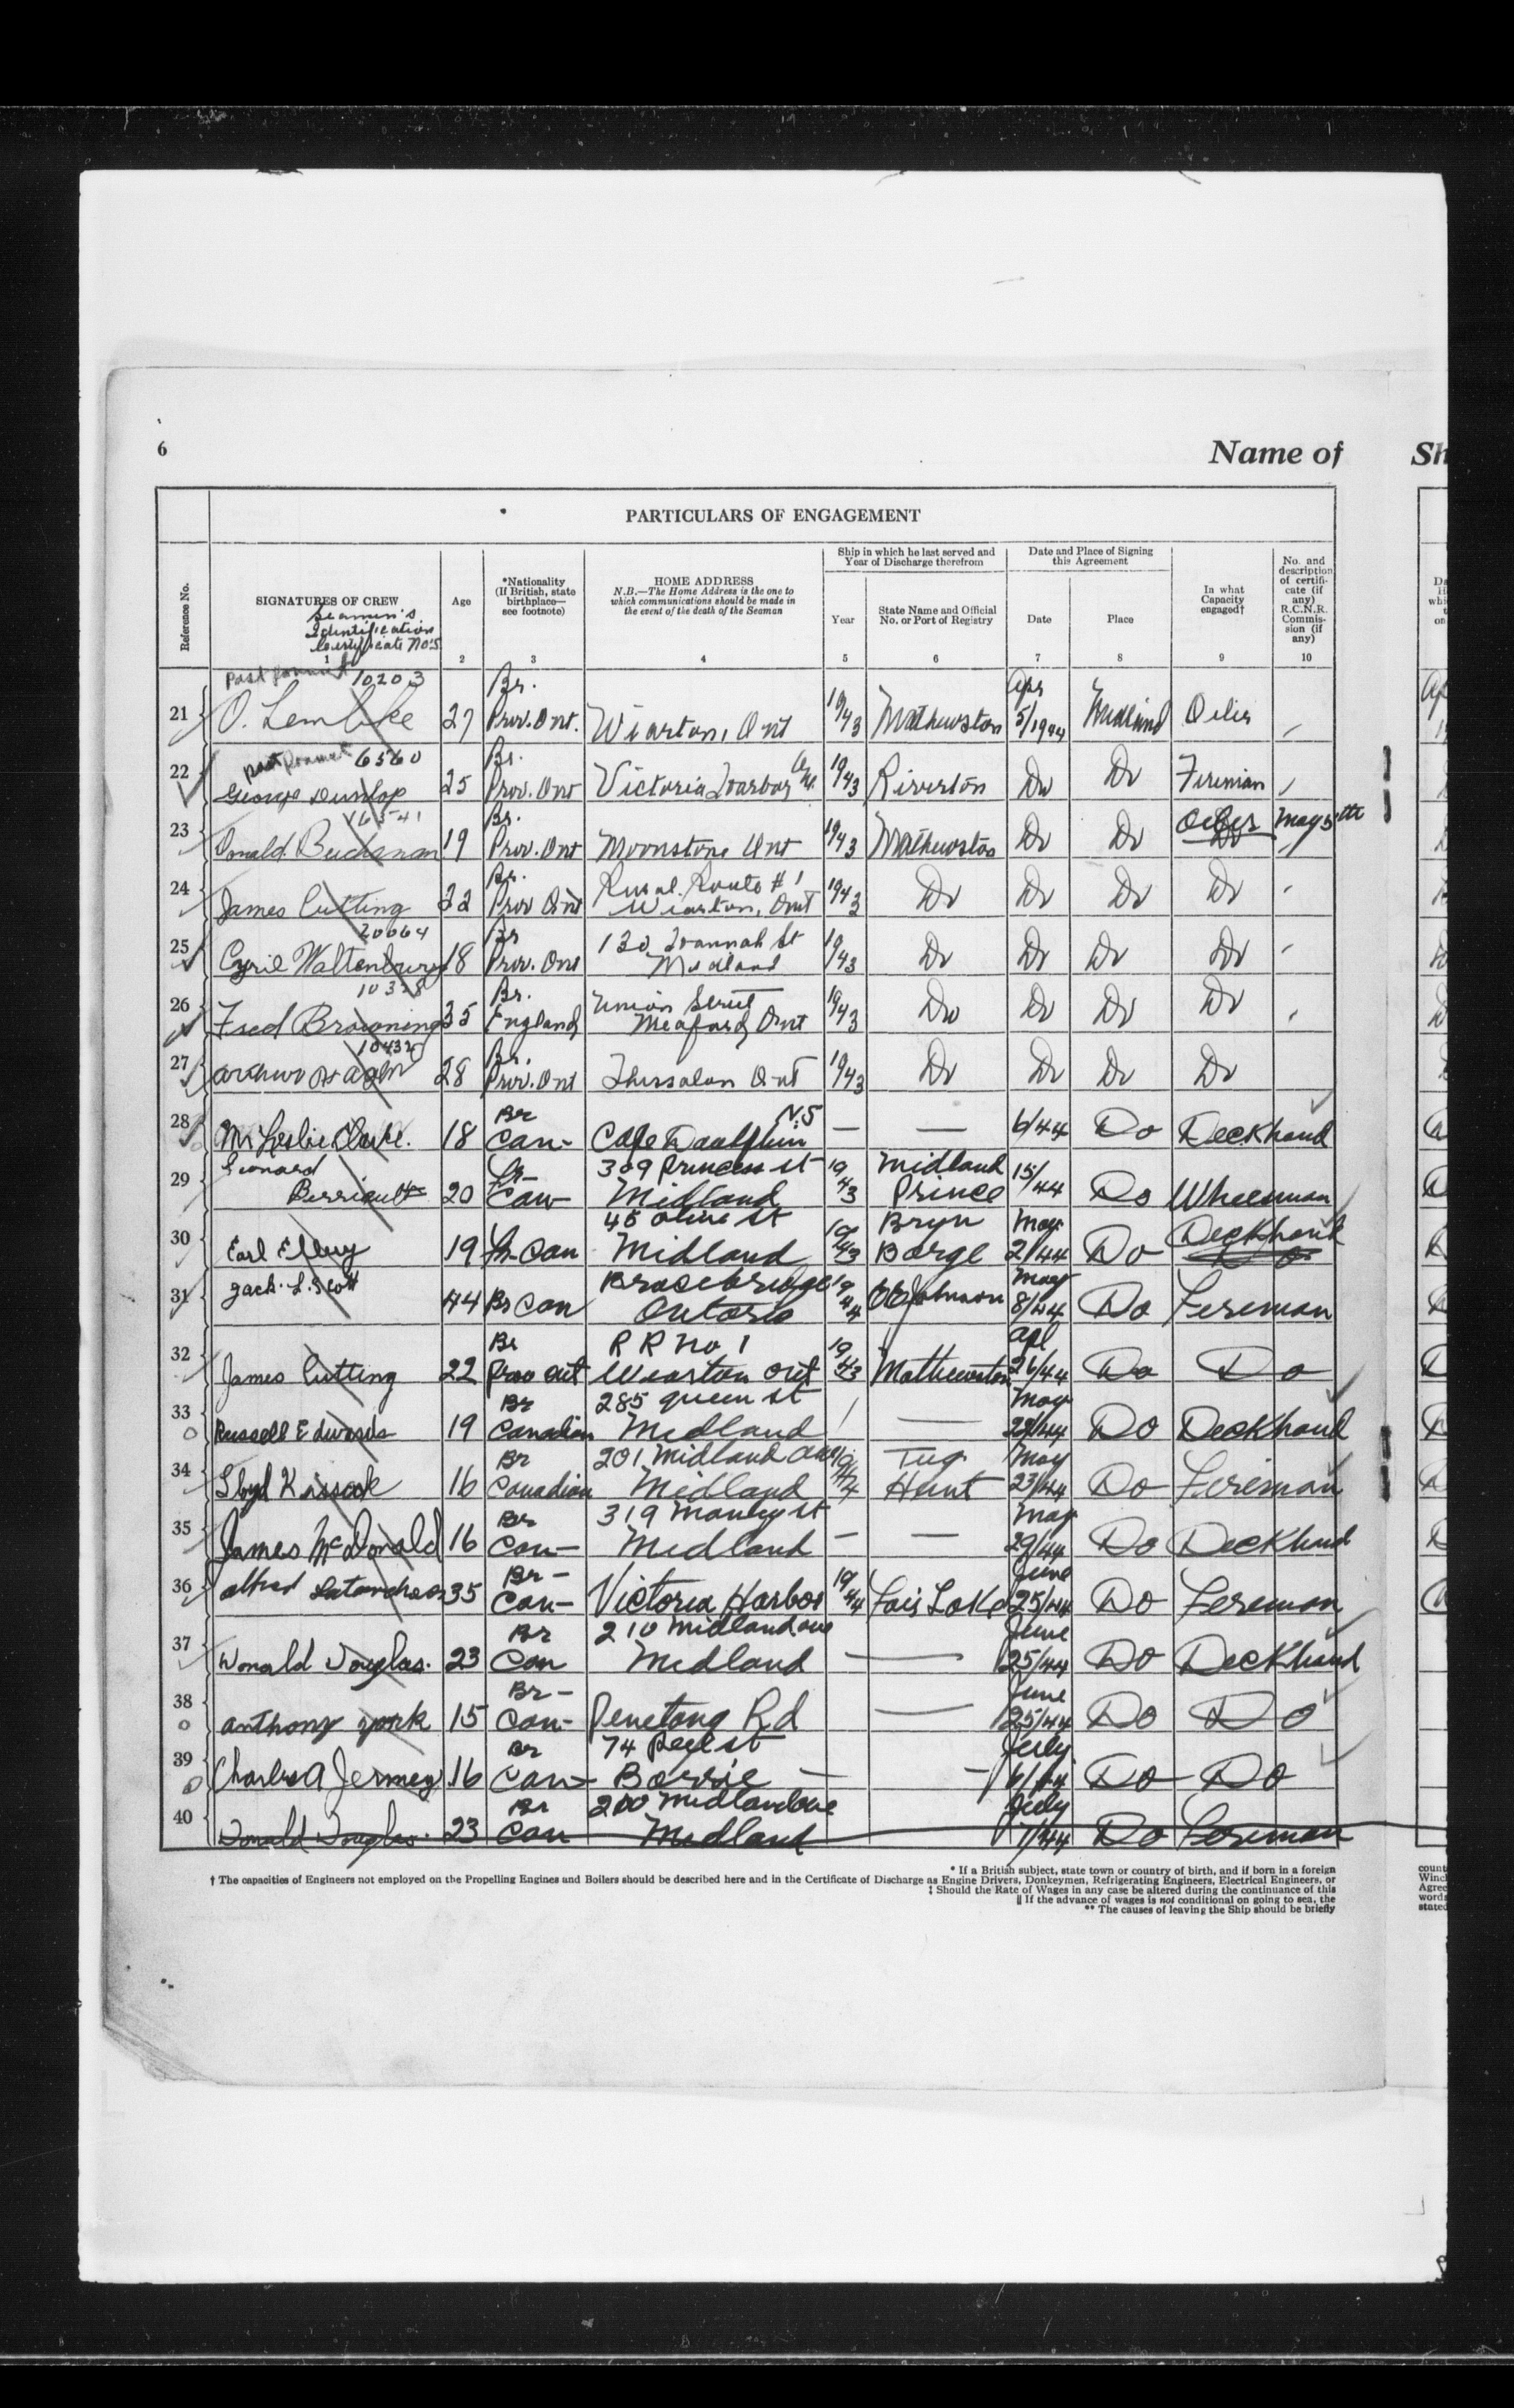 6
Name of
Sh
PARTICULARS OF ENGAGEMENT
Reference No.
SIGNATURES OF CREW
Seamen's
Identification
Certificate No's
1
Age
2
*Nationality
(If British, state
birthplace—
see footnote)
3
HOME ADDRESS
N.B.—The Home Address is the one to
which communications should be made in
the event of the death of the Seaman
4
Ship in which he last served and
Year of Discharge therefrom
Year
5
State Name and Official
No. or Port of Registry
6
Date and Place of Signing
this Agreement
Date
7
Place
8
In what
Capacity
engaged†
9
No. and
description
of certifi-
cate (if
any)
R.C.N.R.
Commis-
sion (if
any)
10
10203 Br. Apr
21 O. Lembke 27 Prov. Ont. Wiarton, Ont 1943 Mathewston 5/1944 Midland Oiler
6560 Br.
22 George Dunlop 25 Prov. Ont Victoria Harbor Ont. 1943 Riverton Do Do Fireman
16541 Br. Oiler May 5th
23 Donald Buchanan 19 Prov. Ont Moonstone Ont 1943 Mathewston Do Do Do
Br. Rural Route #1
24 James Cutting 22 Prov Ont Wiarton, Ont 1943 Do Do Do Do
20064 Br 130 Hannah St
25 Cyril Waltenbury 18 Prov. Ont Midland 1943 Do Do Do Do
Br. Union Street
26 Fred Browning 35 England Meaford Ont 1943 Do Do Do Do
10432 Br.
27 28 Prov. Ont Thessalon Ont 1943 Do Do Do Do
Br N.S
28 M. Leslie Clarke. 18 Can- Cape Dauphin — — 6/44 Do Deckhand
Leonard Br- 309 Princess st 19 Midland 15/
29 Berriault 20 Can- Midland 43 Prince 44 Do Wheelsman
45 Olive st 19 Bryn May Deckhand
30 Earl 19 Br-Can Midland 43 Barge 2/44 Do Do
Jack. L. Scott Bracebridge 19 May
31 44 Br Can Ontario 44 Johnson 8/44 Do Fireman
Br R R No 1 19 Apl
32 James Cutting 22 Prov Ont Wiarton Ont 43 Mathewston 26/44 Do Do
Br 285 queen st May
33 Russell Edwards 19 Canadian Midland / — 22/44 Do Deckhand
Br 201 Midland Ave 19 Tug May
34 Lloyd Kissock 16 Canadian Midland 44 Hunt 23/44 Do Fireman
Br 319 Manley st May
35 James McDonald 16 Can- Midland — — 29/44 Do Deckhand
Br- 19 June
36 Alfred 35 Can- Victoria Harbor 44 25/44 Do Fireman
Br 210 Midland ave June
37 Donald Douglas. 23 Can Midland — 25/44 Do Deckhand
Br- June
38 Anthony York 15 Can- Penetang Rd — 25/44 Do Do
Br 74 Peel st July
39 Charles A Jermey 16 Can- Barrie — — 6/44 Do Do
Br 210 Midland ave July
40 Donald Douglas. 23 Can Midland 7/44 Do Fireman
* If a British subject, state town or country of birth, and if born in a foreign
† The capacities of Engineers not employed on the Propelling Engines and Boilers should be described here and in the Certificate of Discharge as Engine Drivers, Donkeymen, Refrigerating Engineers, Electrical Engineers, or
‡ Should the Rate of Wages in any case be altered during the continuance of this
|| If the advance of wages is not conditional on going to sea, the
** The causes of leaving the Ship should be briefly